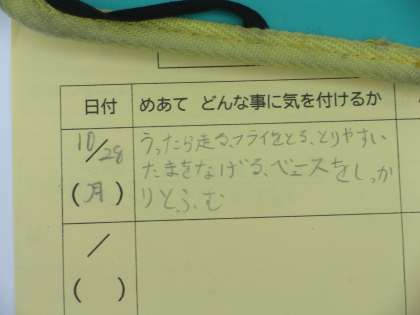 日付 めあて どんな事に気を付けるか
10/28 うったら走る、フライをとる、とりやすい
たまをなげる、ベースをしっか
(月) りとふむ
/
( )